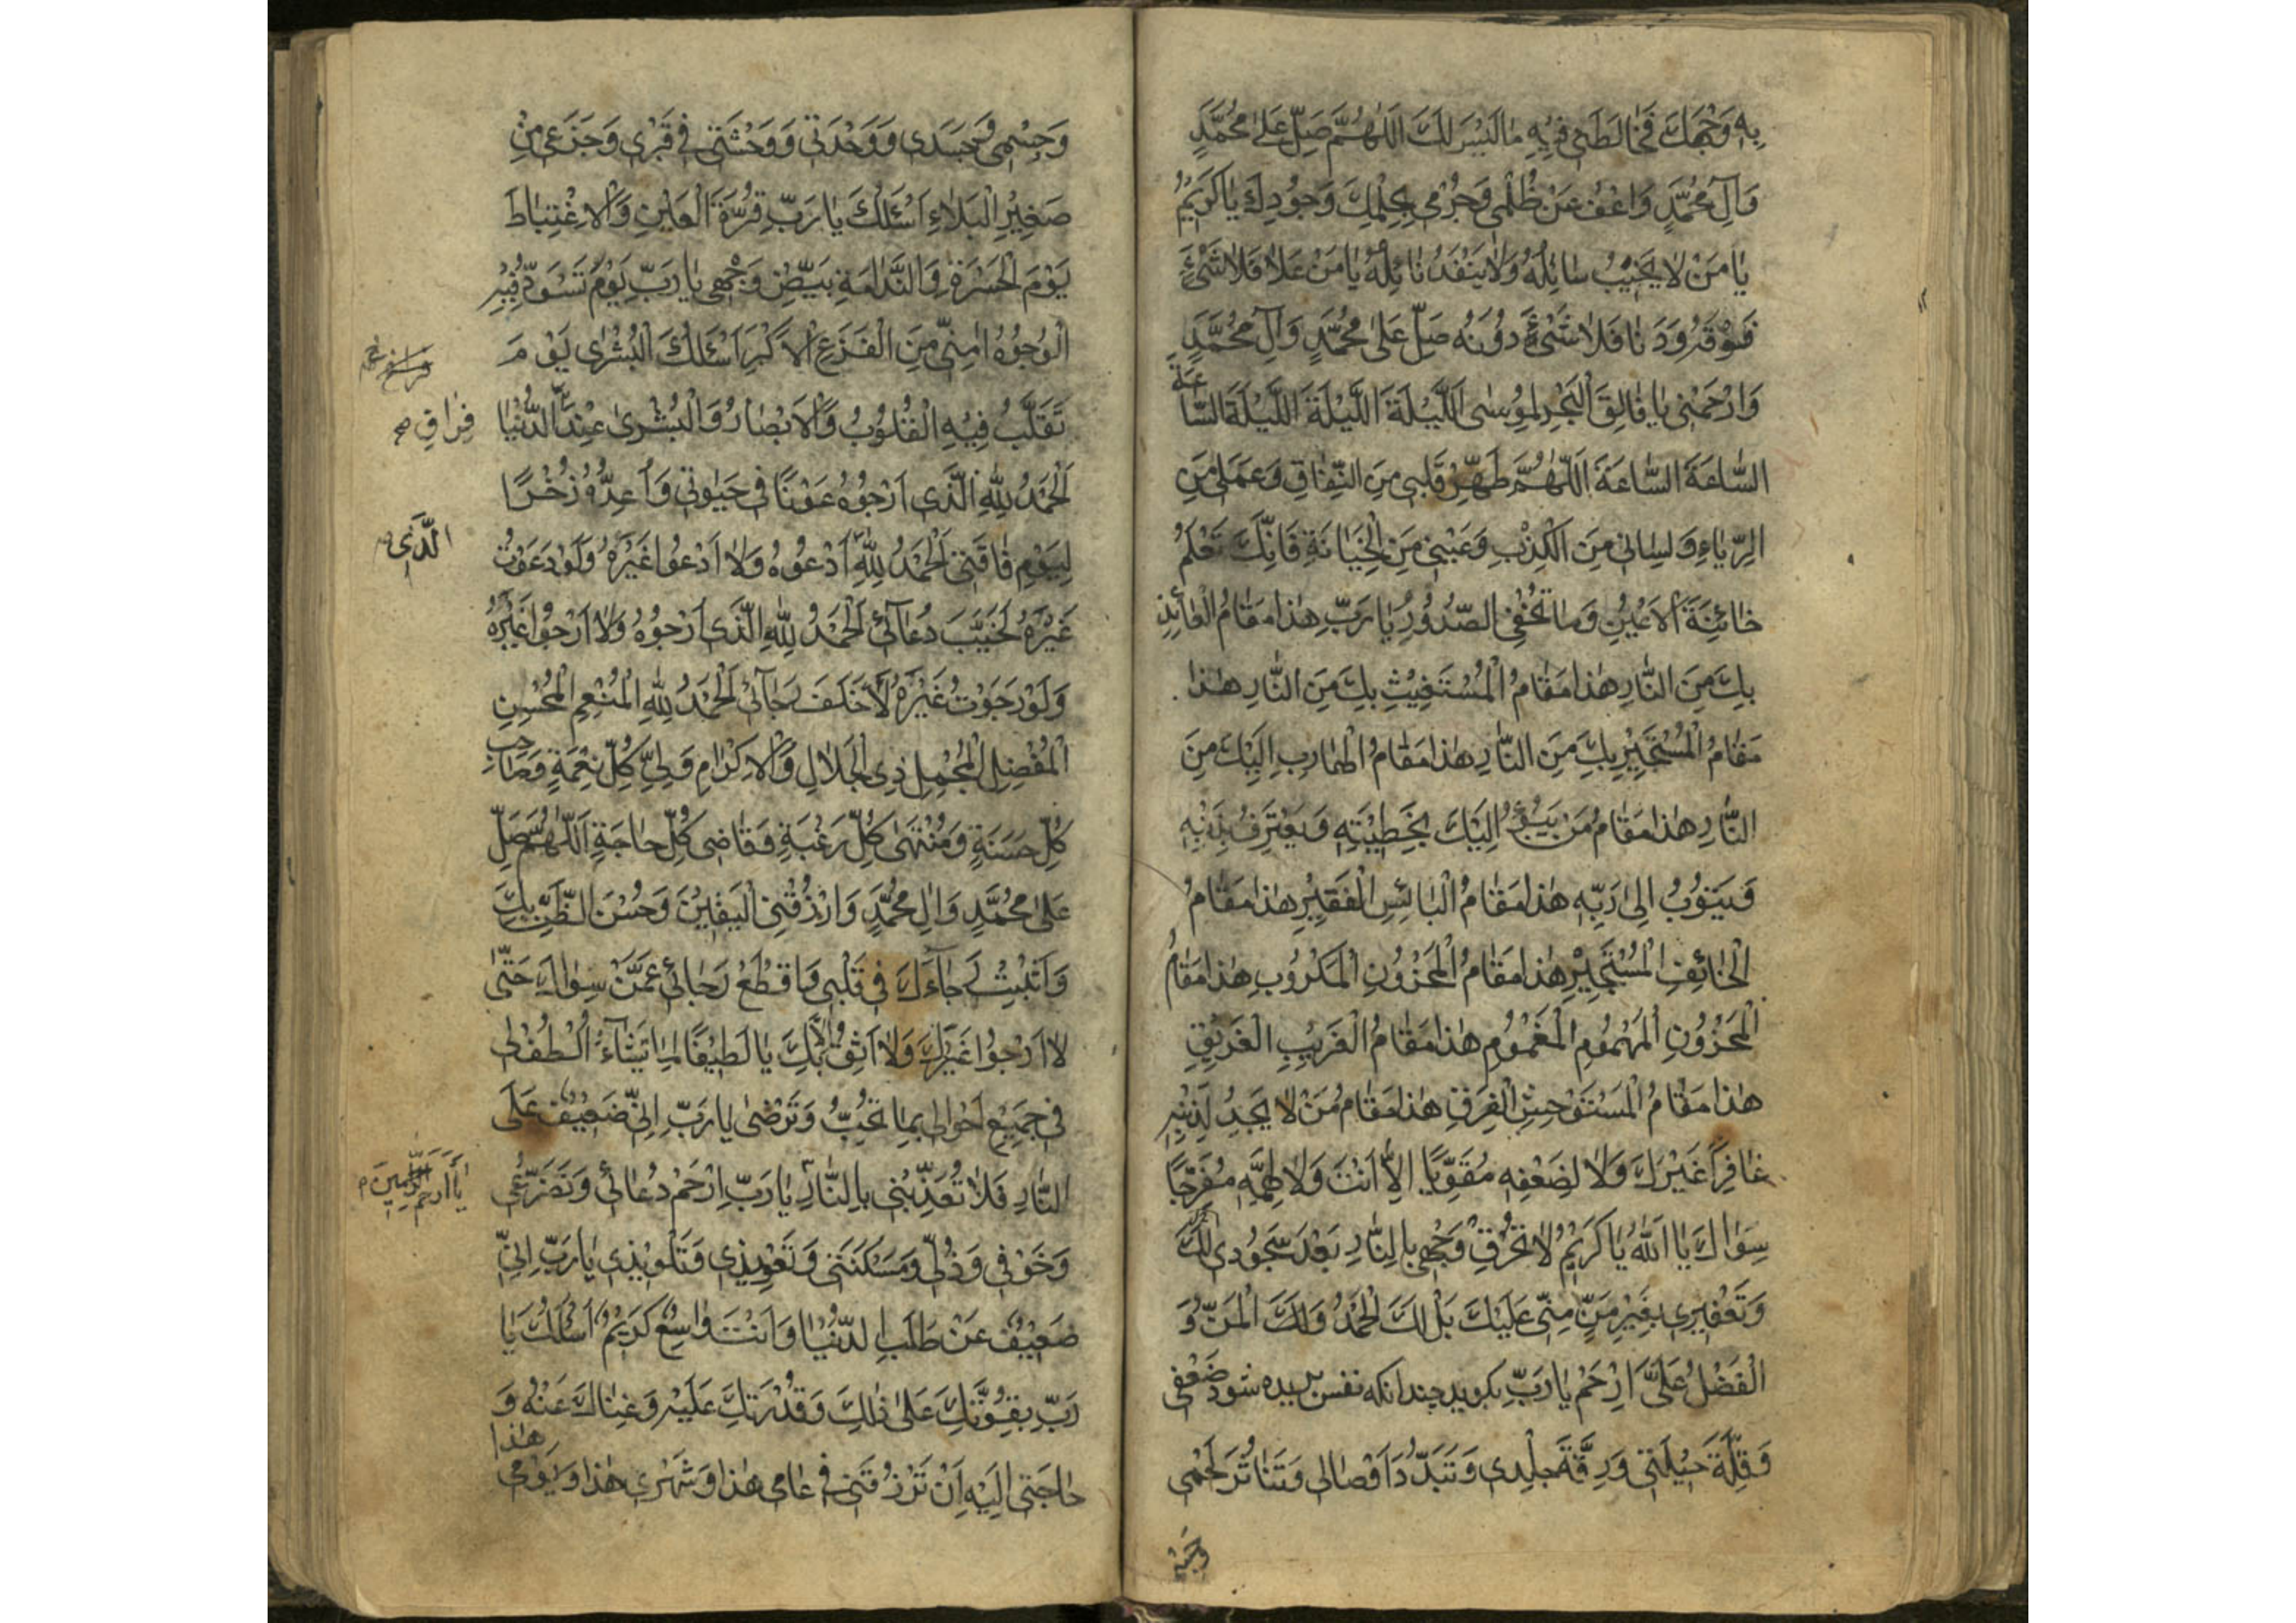 بِهِ وَجْهَكَ فَخَالَطَنِي فِيهِ مَا لَيْسَ لَكَ اَللّٰهُمَّ صَلِّ عَلٰى مُحَمَّدٍ
وَآلِ مُحَمَّدٍ وَاعْفُ عَنْ ظُلْمِي وَجُرْمِي بِحِلْمِكَ وَجُودِكَ يَا كَرِيمُ
يَا مَنْ لَا يَخِيبُ سَائِلُهُ وَلَا يَنْفَدُ نَائِلُهُ يَا مَنْ عَلَا فَلَا شَيْءَ
فَوْقَهُ وَدَنَا فَلَا شَيْءَ دُونَهُ صَلِّ عَلٰى مُحَمَّدٍ وَآلِ مُحَمَّدٍ
وَارْحَمْنِي يَا فَالِقَ الْبَحْرِ لِمُوسٰى اَللَّيْلَةَ اللَّيْلَةَ اللَّيْلَةَ السَّاعَةَ
السَّاعَةَ السَّاعَةَ اَللّٰهُمَّ طَهِّرْ قَلْبِي مِنَ النِّفَاقِ وَعَمَلِي مِنَ
الرِّيَاءِ وَلِسَانِي مِنَ الْكِذْبِ وَعَيْنِي مِنَ الْخِيَانَةِ فَاِنَّكَ تَعْلَمُ
خَائِنَةَ الْاَعْيُنِ وَمَا تُخْفِي الصُّدُورُ يَا رَبِّ هٰذَا مَقَامُ الْعَائِذِ
بِكَ مِنَ النَّارِ هٰذَا مَقَامُ الْمُسْتَغِيثِ بِكَ مِنَ النَّارِ هٰذَا
مَقَامُ الْمُسْتَجِيرِ بِكَ مِنَ النَّارِ هٰذَا مَقَامُ الْهَارِبِ اِلَيْكَ مِنَ
النَّارِ هٰذَا مَقَامُ مَنْ يَبُوءُ اِلَيْكَ بِخَطِيئَتِهِ وَيَعْتَرِفُ بِذَنْبِهِ
وَيَتُوبُ اِلٰى رَبِّهِ هٰذَا مَقَامُ الْبَائِسِ الْفَقِيرِ هٰذَا مَقَامُ
الْخَائِفِ الْمُسْتَجِيرِ هٰذَا مَقَامُ الْمَحْزُونِ الْمَكْرُوبِ هٰذَا مَقَامُ
الْمَحْزُونِ الْمَهْمُومِ الْمَغْمُومِ هٰذَا مَقَامُ الْغَرِيبِ الْغَرِيقِ
هٰذَا مَقَامُ الْمُسْتَوْحِشِ الْفَرِقِ هٰذَا مَقَامُ مَنْ لَا يَجِدُ لِذَنْبِهِ
غَافِرًا غَيْرَكَ وَلَا لِضَعْفِهِ مُقَوِّيًا اِلَّا اَنْتَ وَلَا لِهَمِّهِ مُفَرِّجًا
سِوَاكَ يَا اَللّٰهُ يَا كَرِيمُ لَا تُحْرِقْ وَجْهِي بِالنَّارِ بَعْدَ سُجُودِي لَكَ
وَتَعْفِيرِي بِغَيْرِ مَنٍّ مِنِّي عَلَيْكَ بَلْ لَكَ الْحَمْدُ وَلَكَ الْمَنُّ وَ
الْفَضْلُ عَلَيَّ اِرْحَمْ يَا رَبِّ بكويد چندانكه نفس بريده شود ضَعْفِي
وَقِلَّةَ حِيلَتِي وَرِقَّةَ جِلْدِي وَتَبَدُّدَ اَوْصَالِي وَتَنَاثُرَ لَحْمِي
وَجِسْمِي
وَجِسْمِي وَجَسَدِي وَوَحْدَتِي وَوَحْشَتِي فِي قَبْرِي وَجَزَعِي مِنْ
صَغِيرِ الْبَلَاءِ اَسْئَلُكَ يَا رَبِّ قُرَّةَ الْعَيْنِ وَالْاِغْتِبَاطَ
يَوْمَ الْحَسْرَةِ وَالنَّدَامَةِ بَيِّضْ وَجْهِي يَا رَبِّ يَوْمَ تَسْوَدُّ فِيهِ
الْوُجُوهُ اٰمِنِّي مِنَ الْفَزَعِ الْاَكْبَرِ اَسْئَلُكَ الْبُشْرٰى يَوْمَ
تَقَلَّبُ فِيهِ الْقُلُوبُ وَالْاَبْصَارُ وَالْبُشْرٰى عِنْدَ الدُّنْيَا
فِرَاقِ صح
اَلْحَمْدُ لِلّٰهِ الَّذِي اَرْجُوهُ عَوْنًا فِي حَيٰوتِي وَاُعِدُّهُ ذُخْرًا
لِيَوْمِ فَاقَتِي اَلْحَمْدُ لِلّٰهِ اَدْعُوهُ وَلَا اَدْعُوا غَيْرَهُ وَلَوْ دَعَوْتُ
الَّذِي
غَيْرَهُ لَخَيَّبَ دُعَائِي اَلْحَمْدُ لِلّٰهِ الَّذِي اَرْجُوهُ وَلَا اَرْجُوا غَيْرَهُ
وَلَوْ رَجَوْتُ غَيْرَهُ لَاَخْلَفَ رَجَائِي اَلْحَمْدُ لِلّٰهِ الْمُنْعِمِ الْمُحْسِنِ
الْمُفْضِلِ الْمُجْمِلِ ذِي الْجَلَالِ وَالْاِكْرَامِ وَلِيِّ كُلِّ نِعْمَةٍ وَصَاحِبِ
كُلِّ حَسَنَةٍ وَمُنْتَهٰى كُلِّ رَغْبَةٍ وَقَاضِي كُلِّ حَاجَةٍ اَللّٰهُمَّ صَلِّ
عَلٰى مُحَمَّدٍ وَاٰلِ مُحَمَّدٍ وَارْزُقْنِي الْيَقِينَ وَحُسْنَ الظَّنِّ بِكَ
وَاَثْبِتْ رَجَاءَكَ فِي قَلْبِي وَاقْطَعْ رَجَائِي عَمَّنْ سِوَاكَ حَتّٰى
لَا اَرْجُوا غَيْرَكَ وَلَا اَثِقُ اِلَّا بِكَ يَا لَطِيفًا لِمَا تَشَاءُ اُلْطُفْ لِي
فِي جَمِيعِ اَحْوَالِي بِمَا تُحِبُّ وَتَرْضٰى يَا رَبِّ اِنِّي ضَعِيفٌ عَلَى
النَّارِ فَلَا تُعَذِّبْنِي بِالنَّارِ يَا رَبِّ اِرْحَمْ دُعَائِي وَتَضَرُّعِي
يَا اَرْحَمَ الرَّاحِمِينَ
وَخَوْفِي وَذُلِّي وَمَسْكَنَتِي وَتَعْوِيذِي وَتَلْوِيذِي يَا رَبِّ اِنِّي
ضَعِيفٌ عَنْ طَلَبِ الدُّنْيَا وَاَنْتَ وَاسِعٌ كَرِيمٌ اَسْئَلُكَ يَا
رَبِّ بِقُوَّتِكَ عَلٰى ذٰلِكَ وَقُدْرَتِكَ عَلَيْهِ وَغِنَاكَ عَنْهُ وَ
حَاجَتِي اِلَيْهِ اَنْ تَرْزُقَنِي فِي عَامِي هٰذَا وَشَهْرِي هٰذَا وَيَوْمِي هٰذَا